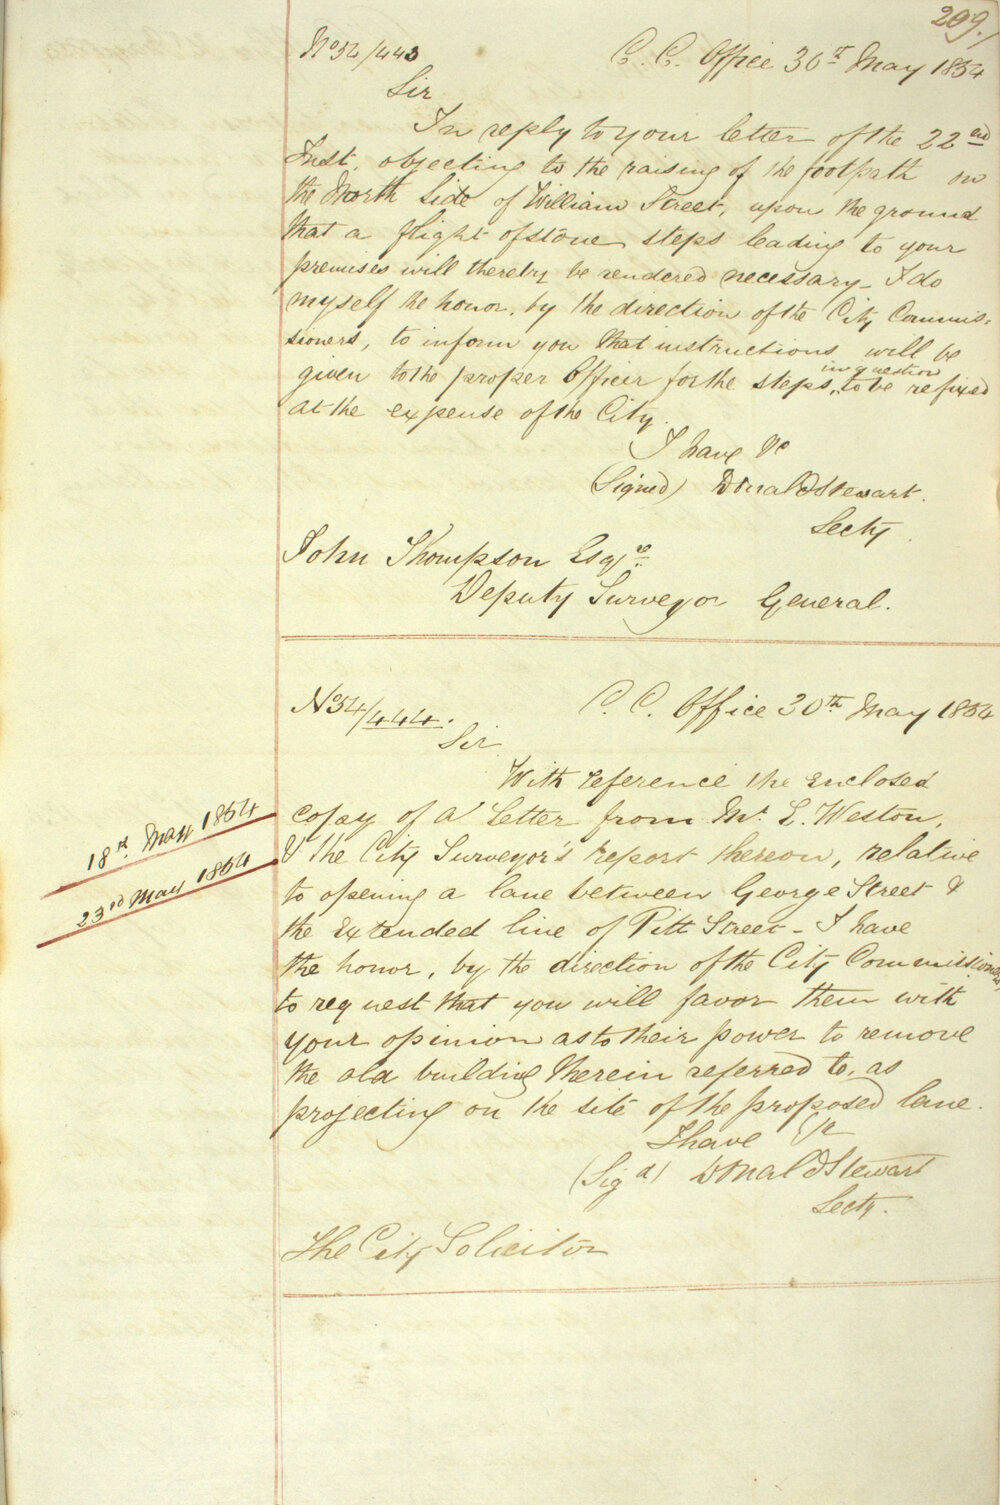 209.
No 54/443
C. C. Office 30th May 1854
Sir
In reply to your letter of the 22nd
Inst. objecting to the raising of the footpath on
the North Side of William Street, upon the ground
that a flight of stone steps leading to your
premises will thereby be rendered necessary - I do
myself the honor, by the direction of the City Commis-
sioners, to inform you that instructions will be
in question
given to the proper Officer for the steps, to be refixed
at the expense of the City.
I have &c
(Signed) Donald Stewart.
Secty.
John Thompson Esqre.
Deputy Surveyor General.
No 54/444.
C. C. Office 30th May 1854
Sir
With reference the enclosed
18th May 1854
copy of a Letter from Mr. L. Weston,
23rd May 1854
& the City Surveyor's report thereon, relative
to opening a lane between George Street &
the Extended line of Pitt Street - I have
the honor, by the direction of the City Commissioners,
to request that you will favor them with
your opinion as to their power to remove
the old building therein referred to, as
projecting on the site of the proposed lane.
I have &c
(Sigd) Donald Stewart
Secty.
The City Solicitor